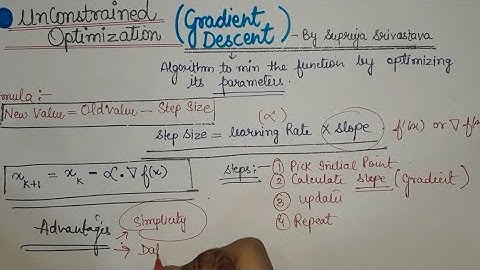 UnConstrained
Optimization (Gradient Descent) - By Supriya Srivastava
Algorithm to min the function by optimizing
its parameters.
mula :-
New Value = Old Value - Step Size
(α)
Step Size = learning Rate × slope f'(x) or ∇ f(x
x_{k+1} = x_k - α. ∇ f(x)
Steps:-
① Pick Initial Point.
② Calculate slope (Gradient)
③ update
④ Repeat
Advantages
→ Simplicity
→ Da